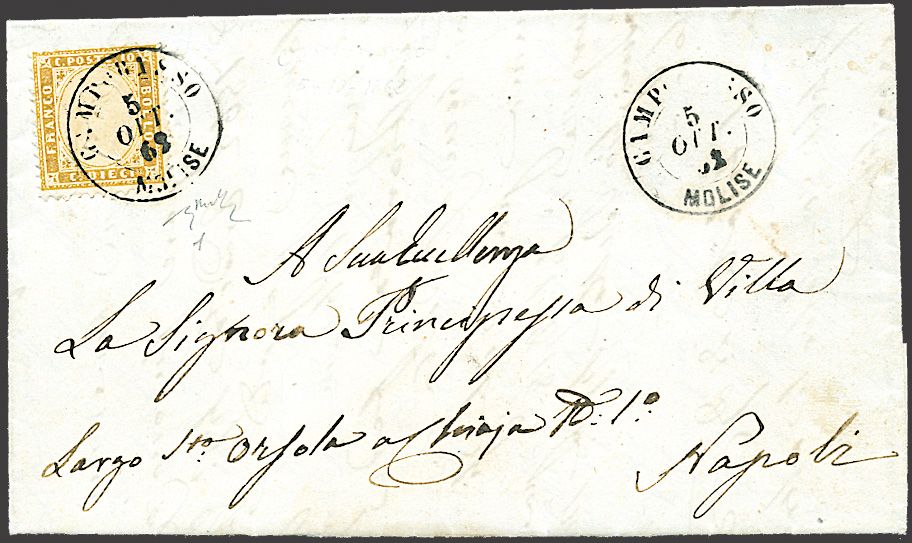 C. POST
FRANCO
BOLLO
C. DIECI
CAMPOBASSO
5
OTT.
62
MOLISE
CAMP SSO
5
OTT.
62
MOLISE
1
A Sua Eccellenza
La Signora Principessa di Villa
Largo Sta Orsola a Chiaja N: 1º
Napoli